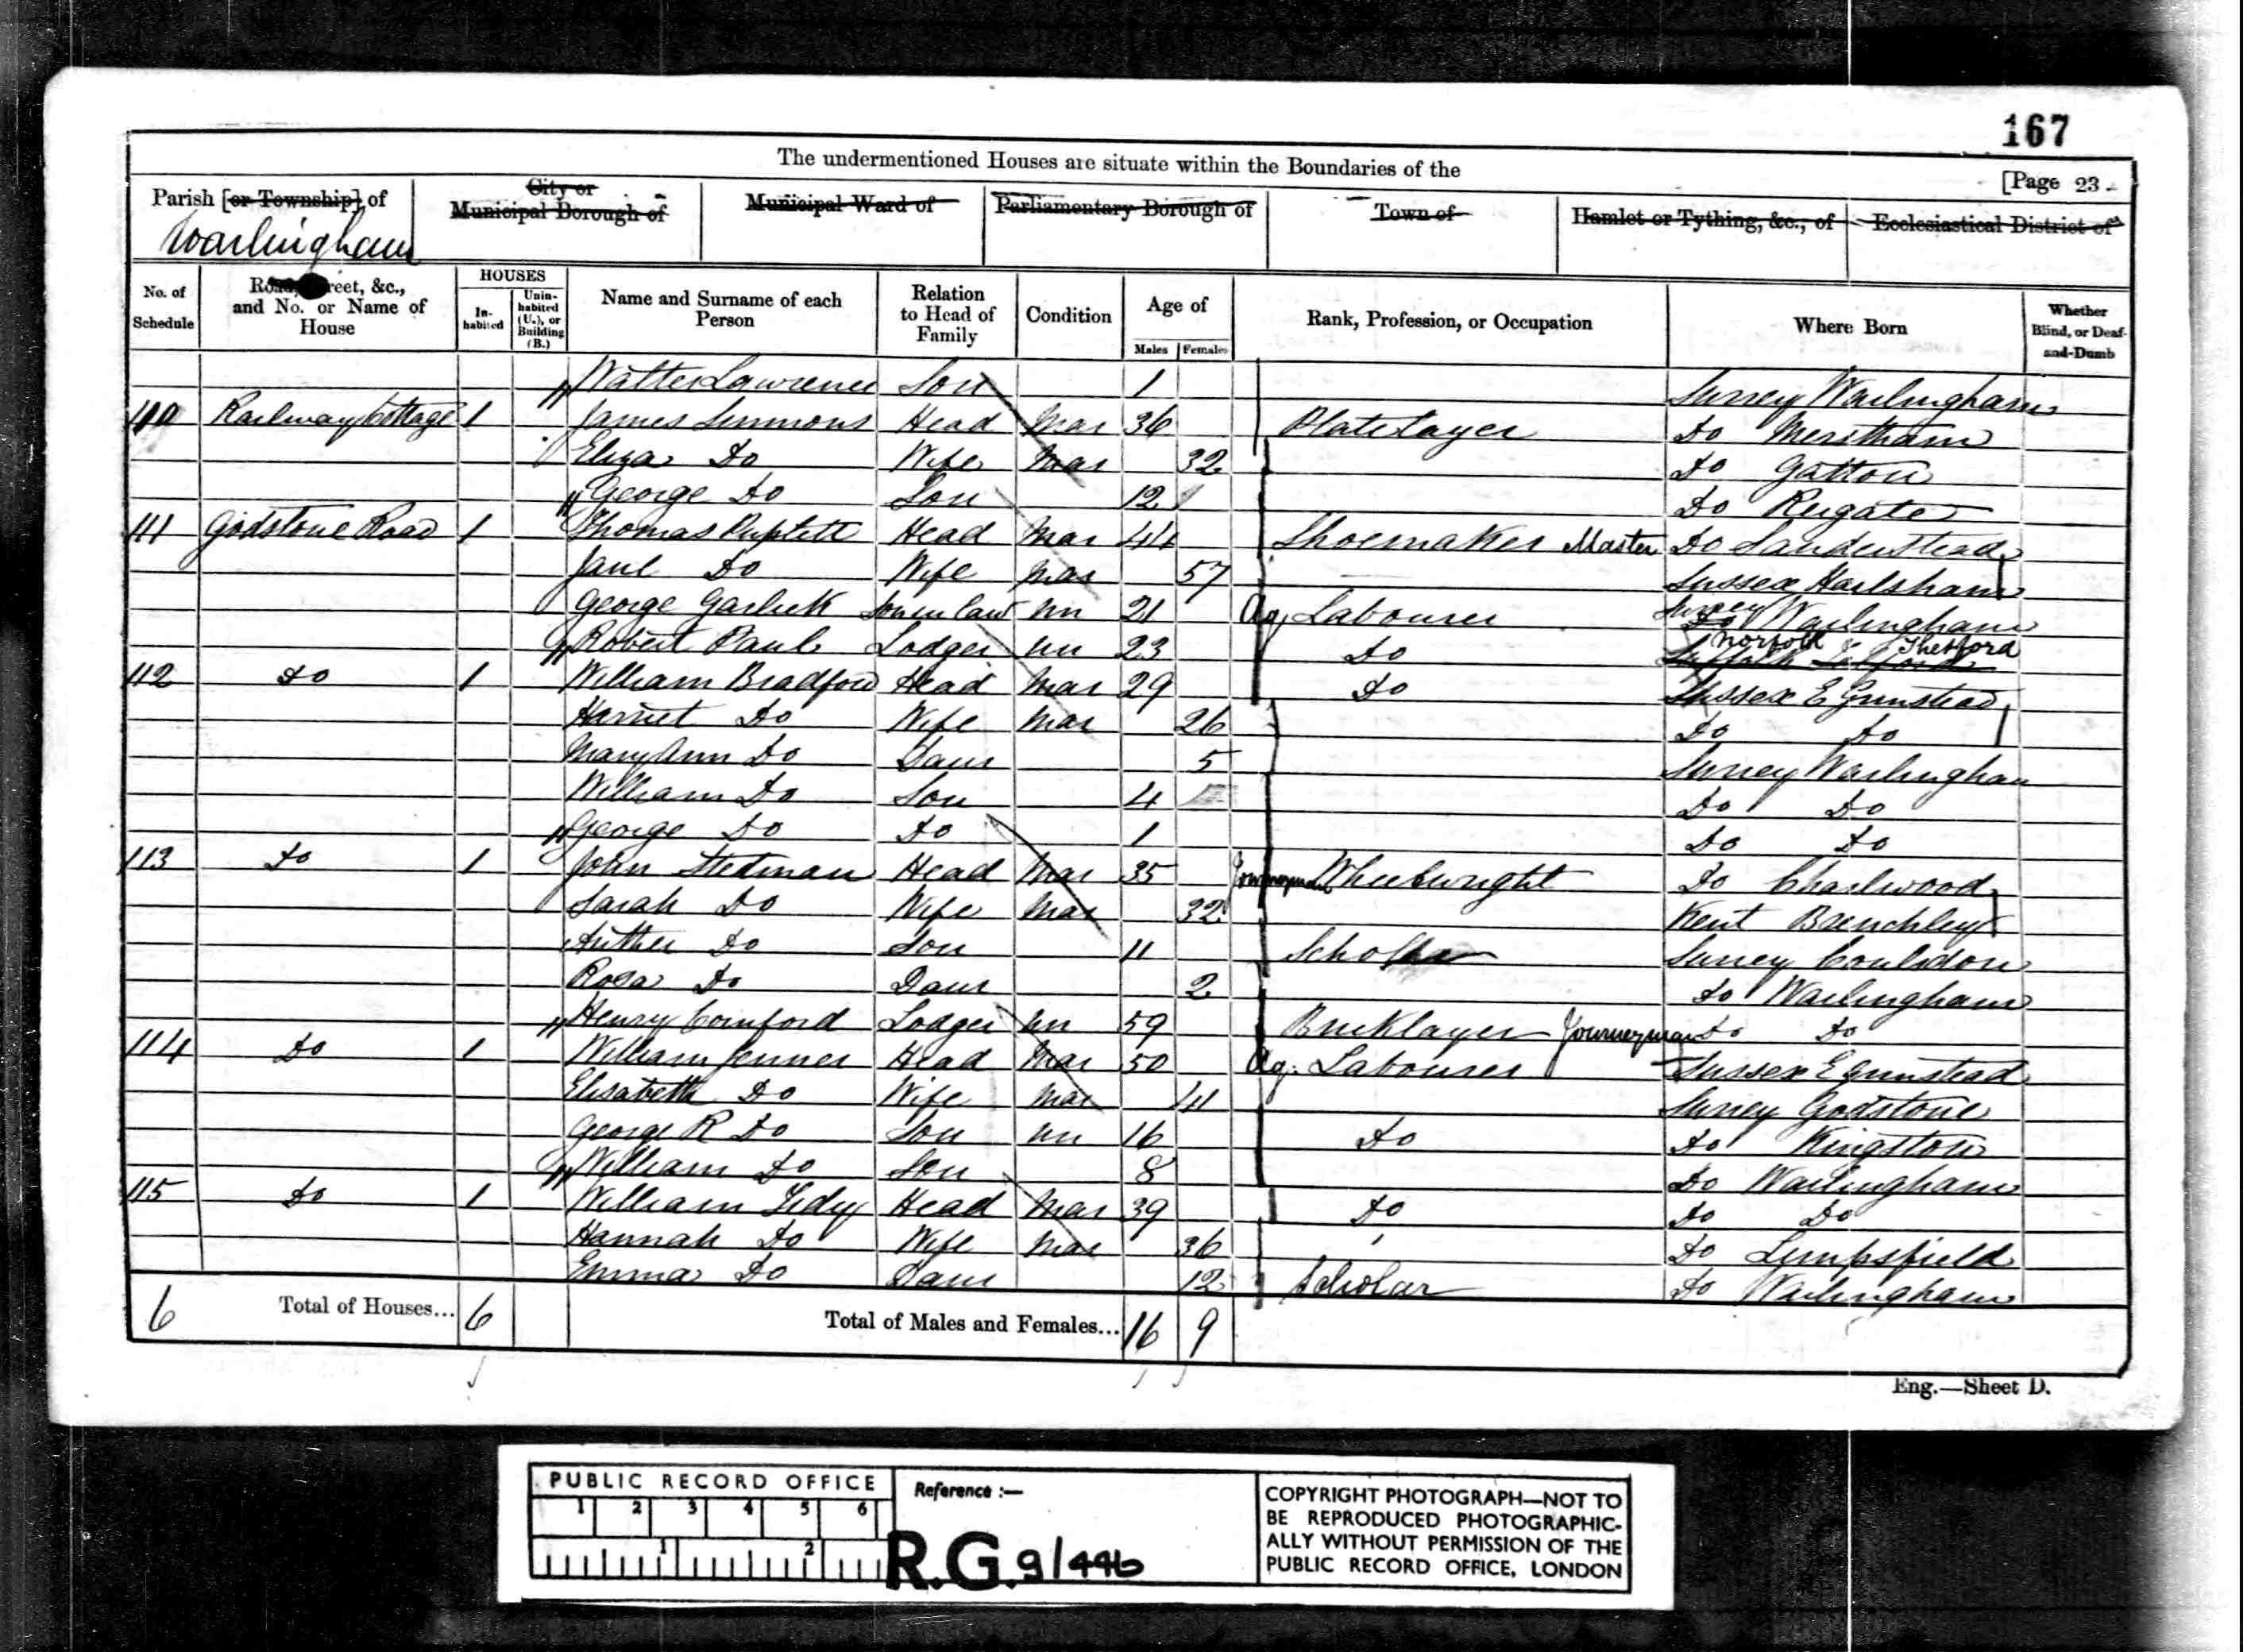 167
The undermentioned Houses are situate within the Boundaries of the
[Page 23
Parish [or Township] of
Warlingham
City or
Municipal Borough of
Municipal Ward of
Parliamentary Borough of
Town of
Hamlet or Tything, &c., of
Ecclesiastical District of
No. of
Schedule
Road, Street, &c.,
and No. or Name of
House
HOUSES
In-
habited
Unin-
habited
(U.), or
Building
(B.)
Name and Surname of each
Person
Relation
to Head of
Family
Condition
Age of
Males
Females
Rank, Profession, or Occupation
Where Born
Whether
Blind, or Deaf-
and-Dumb
Walter Lawrence Son 1 Surrey Warlingham
110 Railway Cottage 1 James Simmons Head Mar 36 Platelayer Do Merstham
Eliza Do Wife Mar 32 Do Gatton
George Do Son 12 Do Reigate
111 Godstone Road 1 Thomas Head Mar 44 Shoemaker Master Do Sanderstead
Jane Do Wife Mar 57 Sussex Hailsham
George Garlick Son in law Un 21 Ag. Labourer Surrey Warlingham
Robert Paul Lodger Un 23 Do Norfolk Thetford
112 Do 1 William Bradford Head Mar 29 Do Sussex E Grinstead
Harriet Do Wife Mar 26 Do Do
Mary Ann Do Daur 5 Surrey Warlingham
William Do Son 4 Do Do
George Do Do 1 Do Do
113 Do 1 John Stedman Head Mar 35 Journeyman Wheelwright Do Charlwood
Sarah Do Wife Mar 32 Kent Brenchley
Arther Do Son 11 Scholar Surrey Coulsdon
Rosa Do Daur 2 Do Warlingham
Henry Comford Lodger Un 59 Bricklayer Journeyman Do Do
114 Do 1 William Jenner Head Mar 50 Ag. Labourer Sussex E Grinstead
Elisabeth Do Wife Mar 41 Surrey Godstone
George R Do Son Un 16 Do Do Kingston
William Do Son 8 Do Warlingham
115 Do 1 William Tidy Head Mar 39 Do Do Do
Hannah Do Wife Mar 36 Do Limpsfield
Emma Do Daur 12 Scholar Do Warlingham
6 Total of Houses... 6 Total of Males and Females... 16 9
Eng.—Sheet D.
PUBLIC RECORD OFFICE
1 2 3 4 5 6
1 2
Reference :—
R.G. 9/446
COPYRIGHT PHOTOGRAPH—NOT TO
BE REPRODUCED PHOTOGRAPHIC-
ALLY WITHOUT PERMISSION OF THE
PUBLIC RECORD OFFICE, LONDON